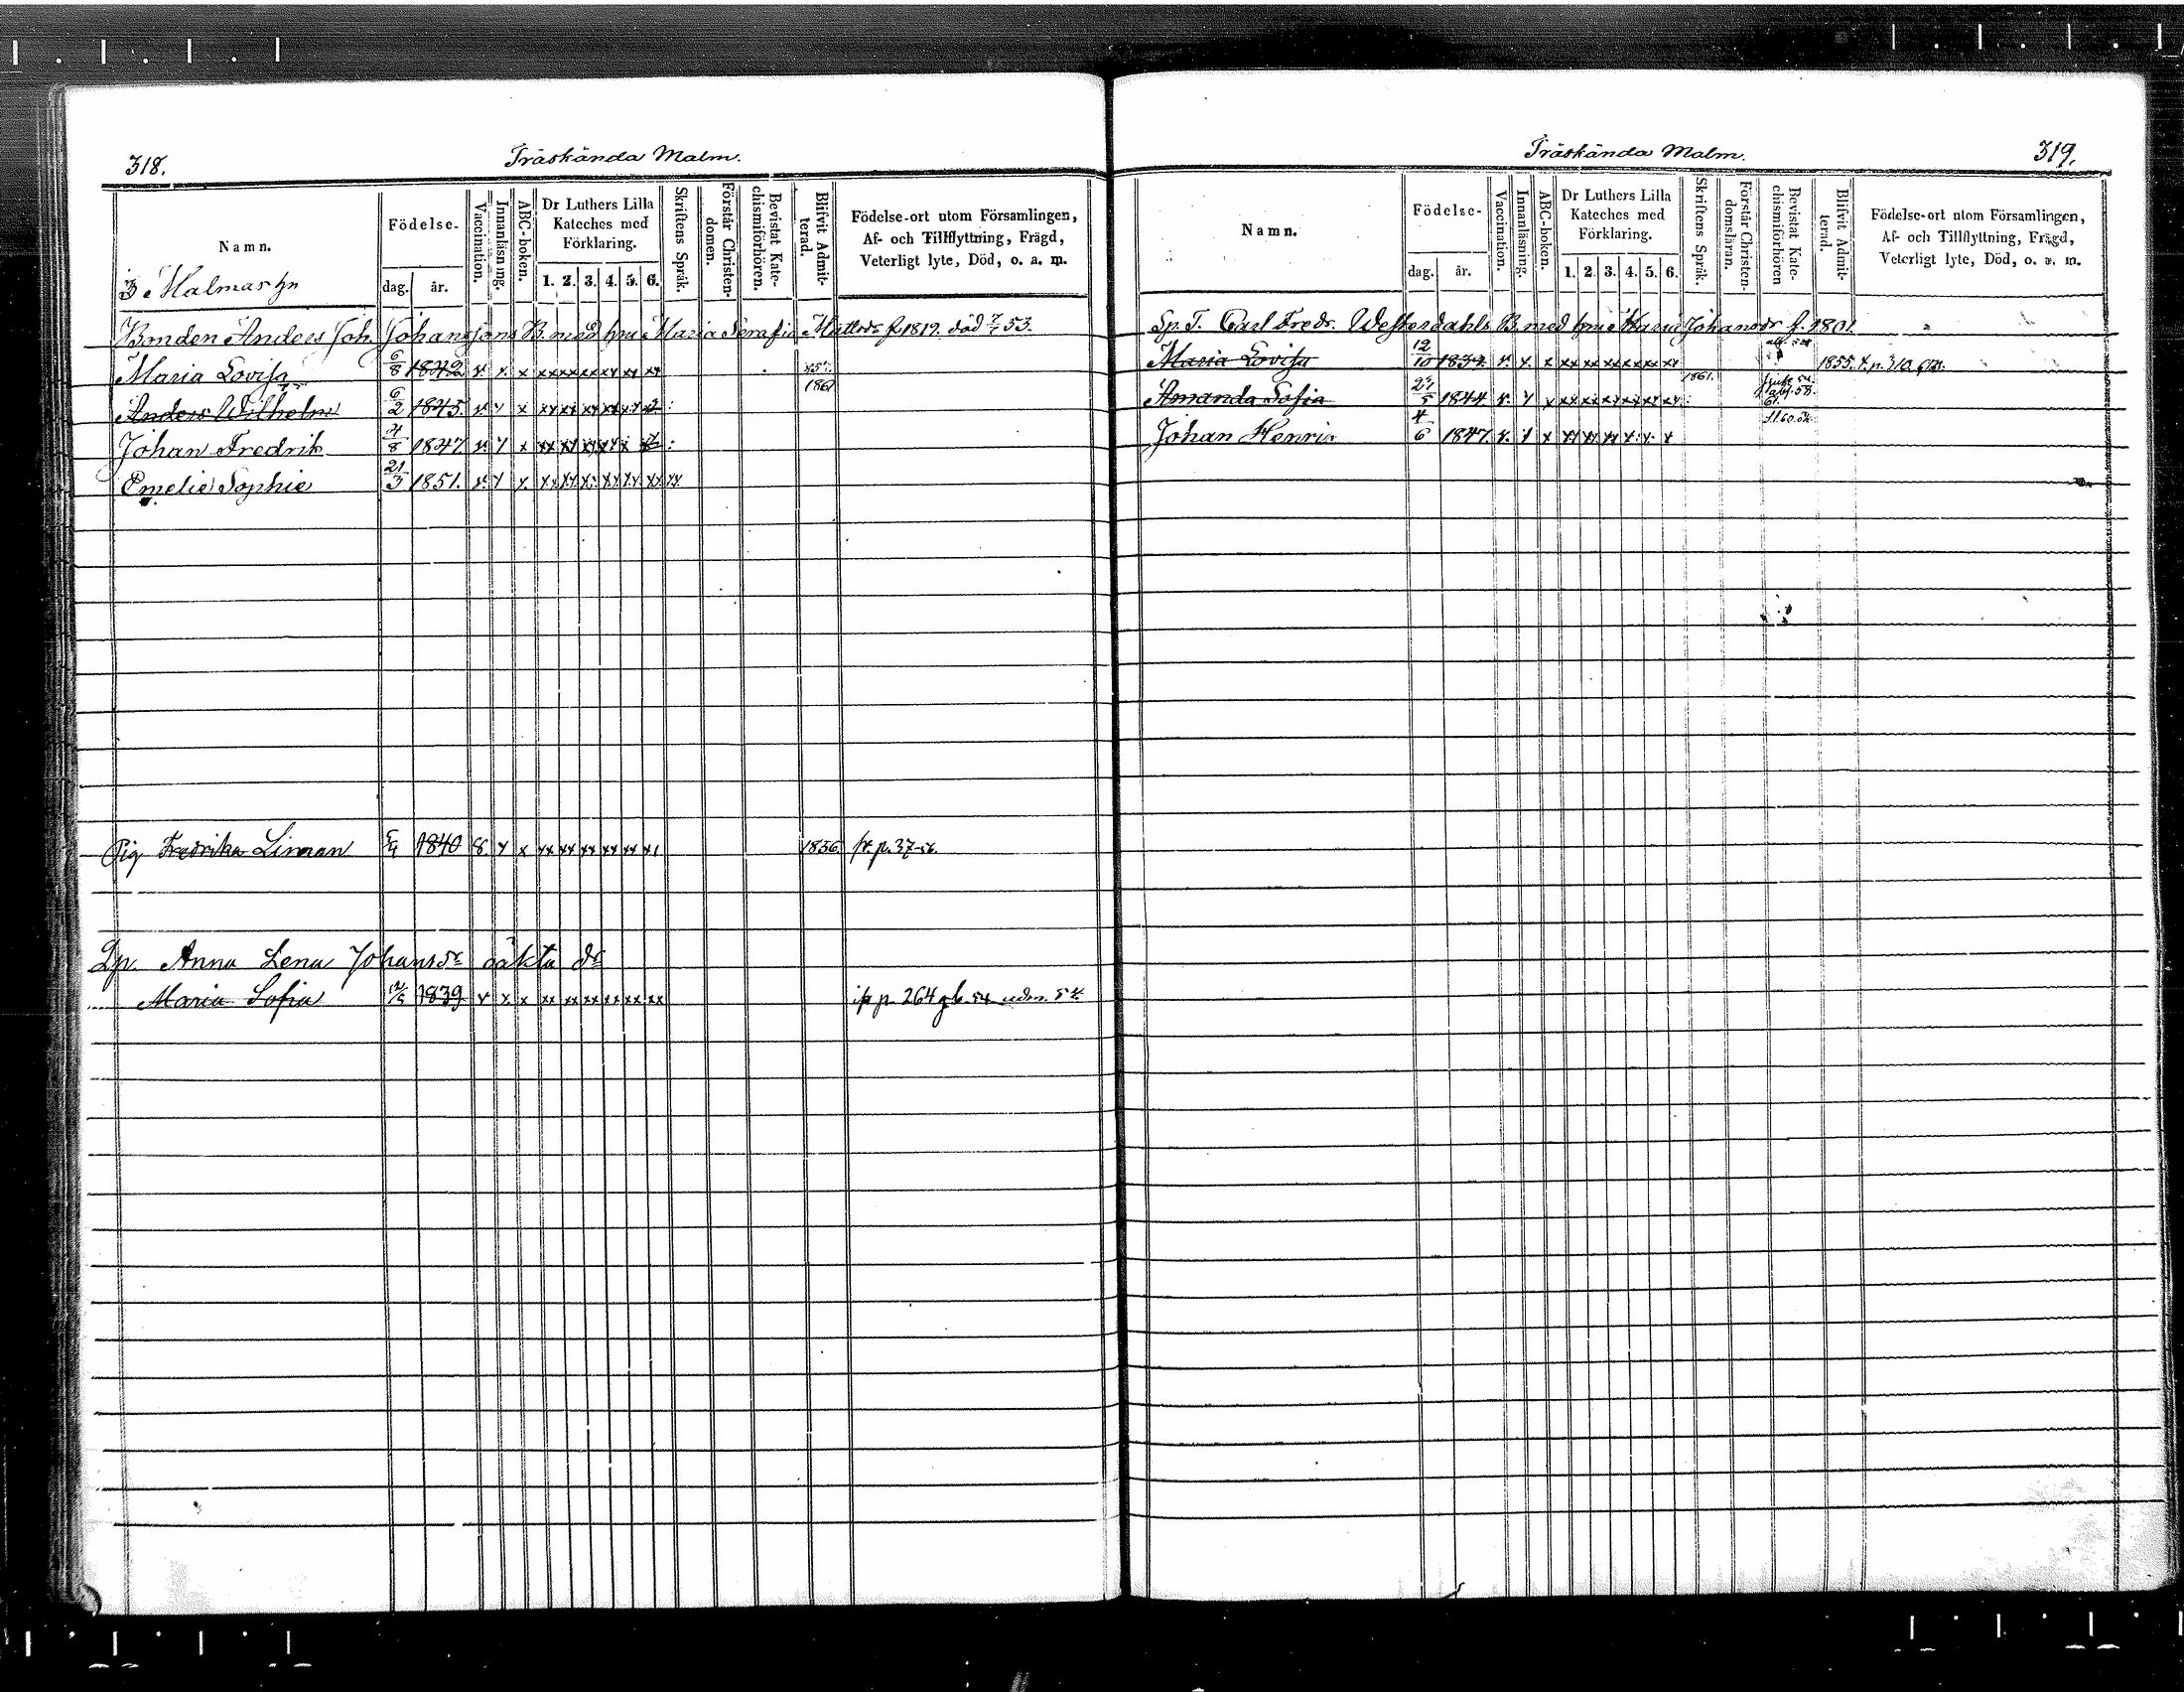 318.
Träskända Malm.
Namn.
Födelse-
dag.
år.
Vaccination.
Innanläsning.
ABC-boken.
Dr Luthers Lilla
Kateches med
Förklaring.
1. 2. 3. 4. 5. 6.
Skriftens Språk.
Förstår Christen-
domen.
Bevistat Kate-
chismiförhören.
Blifvit Admit-
terad.
Födelse-ort utom Församlingen,
Af- och Tillflyttning, Frägd,
Veterligt lyte, Död, o. a. m.
3 Malmas
Bonden Anders Joh. Johanssons B. med hu Maria Serafia f. 1819. död 7/5 53.
Maria Lovisa 6/8 1842 v. x. x xx xx xx xx xx xx
Anders Wilhelm 6/2 1845. v. x x xx xx xx xx xx 1861
Johan Fredrik 4/8 1847 v. x x xx xx xx xx x
Emelie Sophie 21/3 1851. v. x x. xx xx x: xx xx xx xx
Pig. Fredrika Linman 5/9 1840 8. x x xx xx xx xx xx x1 1856. fr. p. 37 56.
Lp. Anna Lena Johansdr oäkta dr
Maria Sofia 12/5 1839 v x. x xx xx xx xx xx xx p. 264 54 54.
Träskända Malm.
319.
Namn.
Födelse-
dag.
år.
Vaccination.
Innanläsning.
ABC-boken.
Dr Luthers Lilla
Kateches med
Förklaring.
1. 2. 3. 4. 5. 6.
Skriftens Språk.
Förstår Christen-
domsläran.
Bevistat Kate-
chismiförhören
Blifvit Admit-
terad.
Födelse-ort utom Församlingen,
Af- och Tillflyttning, Frägd,
Veterligt lyte, Död, o. a. m.
Sp. T. Carl Fredr. Westerdahls B. med hu Maria Johansdr f. 1801.
Maria Lovisa 12/10 1839. v. x. x xx xx xx xx xx xx 1855. p. 310.
Amanda Sofia 27/5 1844 v. x x xx xx xx xx xx xx 1861. 61.
Johan Henric 4/6 1847. v. x x xx xx xx x. x. x